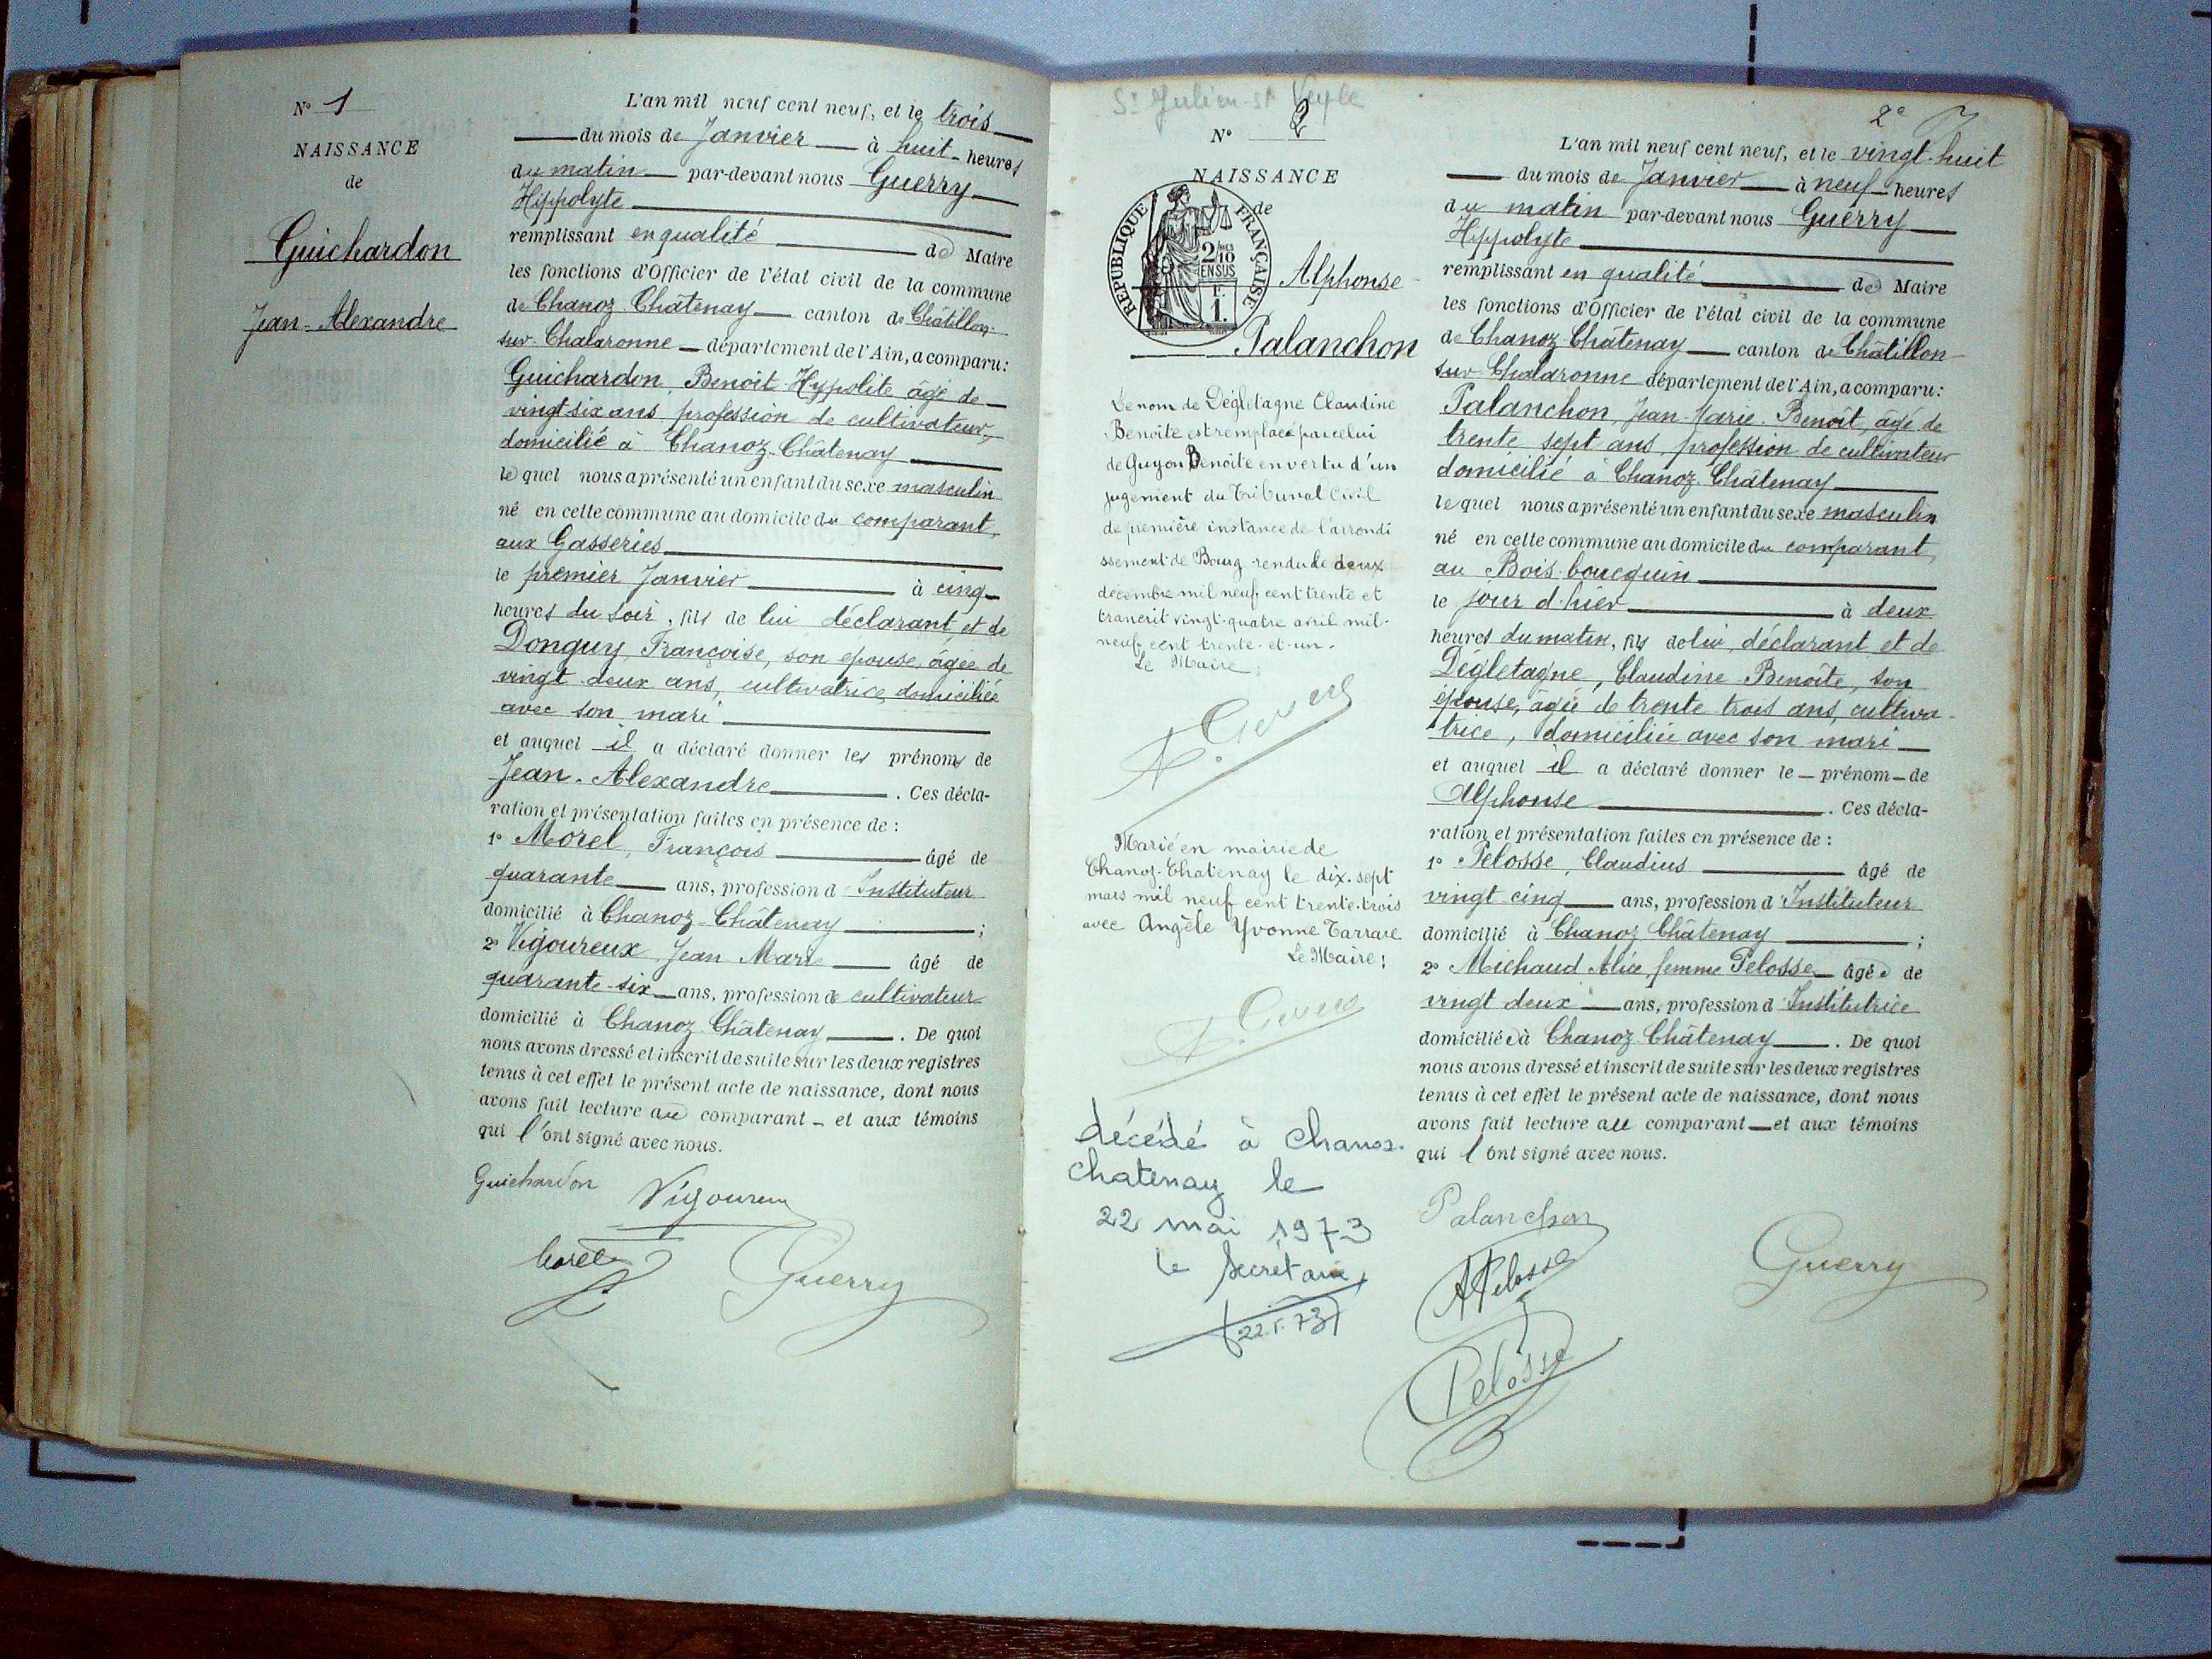 N° 1
NAISSANCE
de
Guichardon
Jean-Alexandre
L'an mil neuf cent neuf, et le trois
du mois de Janvier à huit heures
du matin par-devant nous Guerry
Hippolyte
remplissant en qualité de Maire
les fonctions d'Officier de l'état civil de la commune
de Chanoz-Châtenay canton de Châtillon-
sur-Chalaronne département de l'Ain, a comparu:
Guichardon Benoit Hyppolite âgé de
vingt six ans, profession de cultivateur,
domicilié à Chanoz-Châtenay
lequel nous a présenté un enfant du sexe masculin
né en cette commune au domicile du comparant,
aux Gasseries
le premier Janvier à cinq
heures du soir, fils de lui déclarant, et de
Donguy, Françoise, son épouse, âgée de
vingt deux ans, cultivatrice, domiciliée
avec son mari
et auquel il a déclaré donner les prénoms de
Jean-Alexandre. Ces décla-
ration et présentation faites en présence de :
1° Morel, François âgé de
quarante ans, profession d'Instituteur
domicilié à Chanoz-Châtenay ;
2° Vigoureux, Jean Marie âgé de
quarante-six ans, profession de cultivateur
domicilié à Chanoz-Châtenay. De quoi
nous avons dressé et inscrit de suite sur les deux registres
tenus à cet effet le présent acte de naissance, dont nous
avons fait lecture au comparant et aux témoins
qui l'ont signé avec nous.
Guichardon Vigoureux
Morel Guerry
St Julien-s/ Veyle
N° 2
NAISSANCE
de
RÉPUBLIQUE FRANÇAISE
2/10 EN SUS
F. 1.
Alphonse
Palanchon
Le nom de Dégletagne Claudine
Benoîte est remplacé par celui
de Guyon Benoîte en vertu d'un
jugement du Tribunal Civil
de première instance de l'arrondi
ssement de Bourg rendu le deux
décembre mil neuf cent trente et
trancrit vingt-quatre avril mil-
neuf cent trente-et-un.
Le Maire;
Marié en mairie de
Chanoz-Chatenay le dix-sept
mars mil neuf cent trente-trois
avec Angèle Yvonne Tarrare
Le Maire:
décédé à Chanoz-
chatenay le
22 mai 1973
le Secrétaire,
2e
L'an mil neuf cent neuf, et le vingt-huit
du mois de Janvier à neuf heures
du matin par-devant nous Guerry
Hippolyte
remplissant en qualité de Maire
les fonctions d'Officier de l'état civil de la commune
de Chanoz-Châtenay canton de Châtillon
sur-Chalaronne département de l'Ain, a comparu:
Palanchon, Jean-Marie-Benoît, âgé de
trente sept ans, profession de cultivateur
domicilié à Chanoz-Châtenay
lequel nous a présenté un enfant du sexe masculin
né en cette commune au domicile du comparant,
au Bois-boucquin
le jour d'hier à deux
heures du matin, fils de lui, déclarant et de
Dégletagne, Claudine-Benoîte, son
épouse, âgée de trente trois ans, cultiva-
trice, domiciliée avec son mari
et auquel il a déclaré donner le prénom de
Alphonse. Ces décla-
ration et présentation faites en présence de :
1° Pelosse, Claudius âgé de
vingt-cinq ans, profession d'Instituteur
domicilié à Chanoz Châtenay ;
2° Michaud Alice, femme Pelosse âgée de
vingt deux ans, profession d'Institutrice
domiciliée à Chanoz Châtenay. De quoi
nous avons dressé et inscrit de suite sur les deux registres
tenus à cet effet le présent acte de naissance, dont nous
avons fait lecture au comparant et aux témoins
qui l'ont signé avec nous.
Palanchon
A Pelosse Guerry
Pelosse